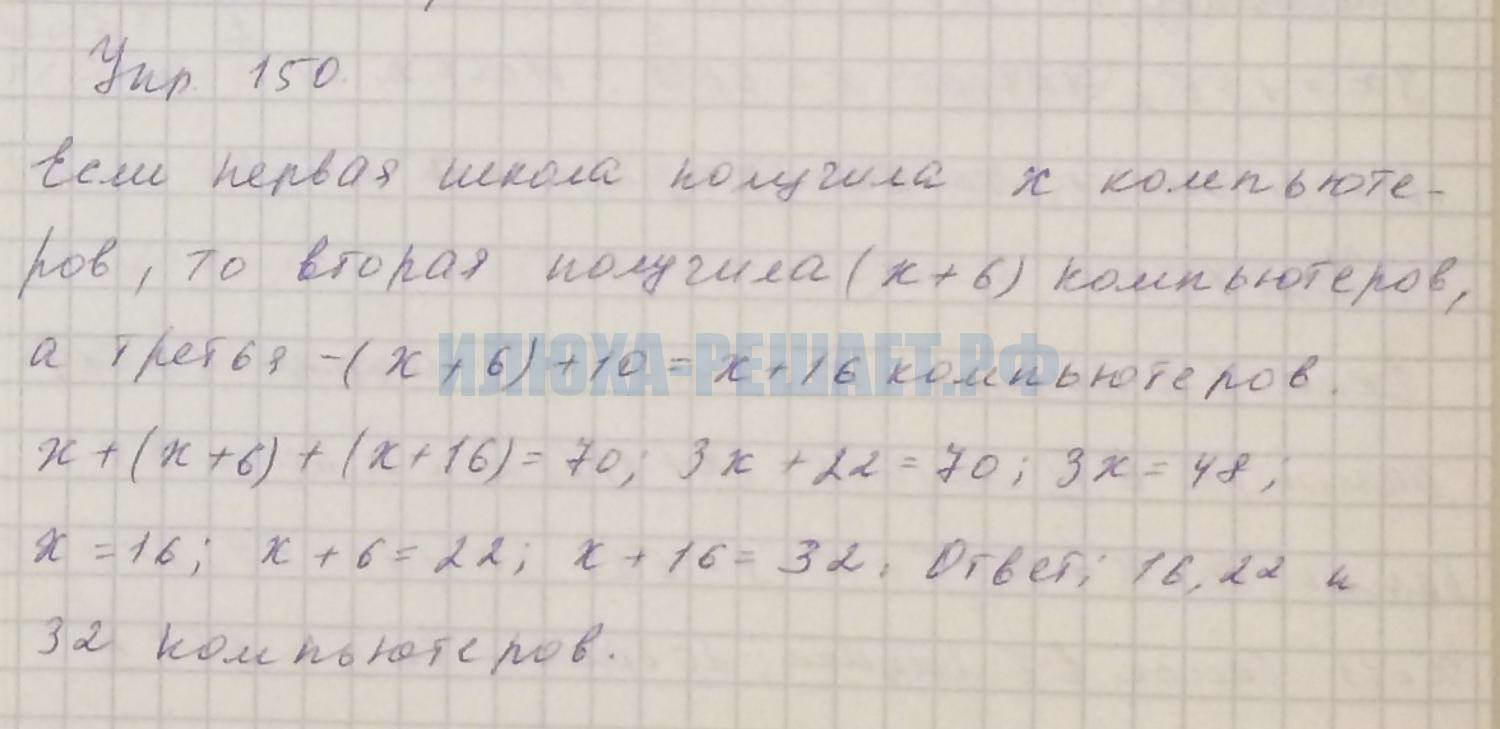 Упр. 150.
Если первая школа получила x компьюте-
ров, то вторая получила (x+6) компьютеров,
а третья -(x+6)+10=x+16 компьютеров.
ИЛЮХА-РЕШАЕТ.РФ
x+(x+6)+(x+16)=70; 3x+22=70; 3x=48;
x=16; x+6=22; x+16=32. Ответ: 16, 22 и
32 компьютеров.